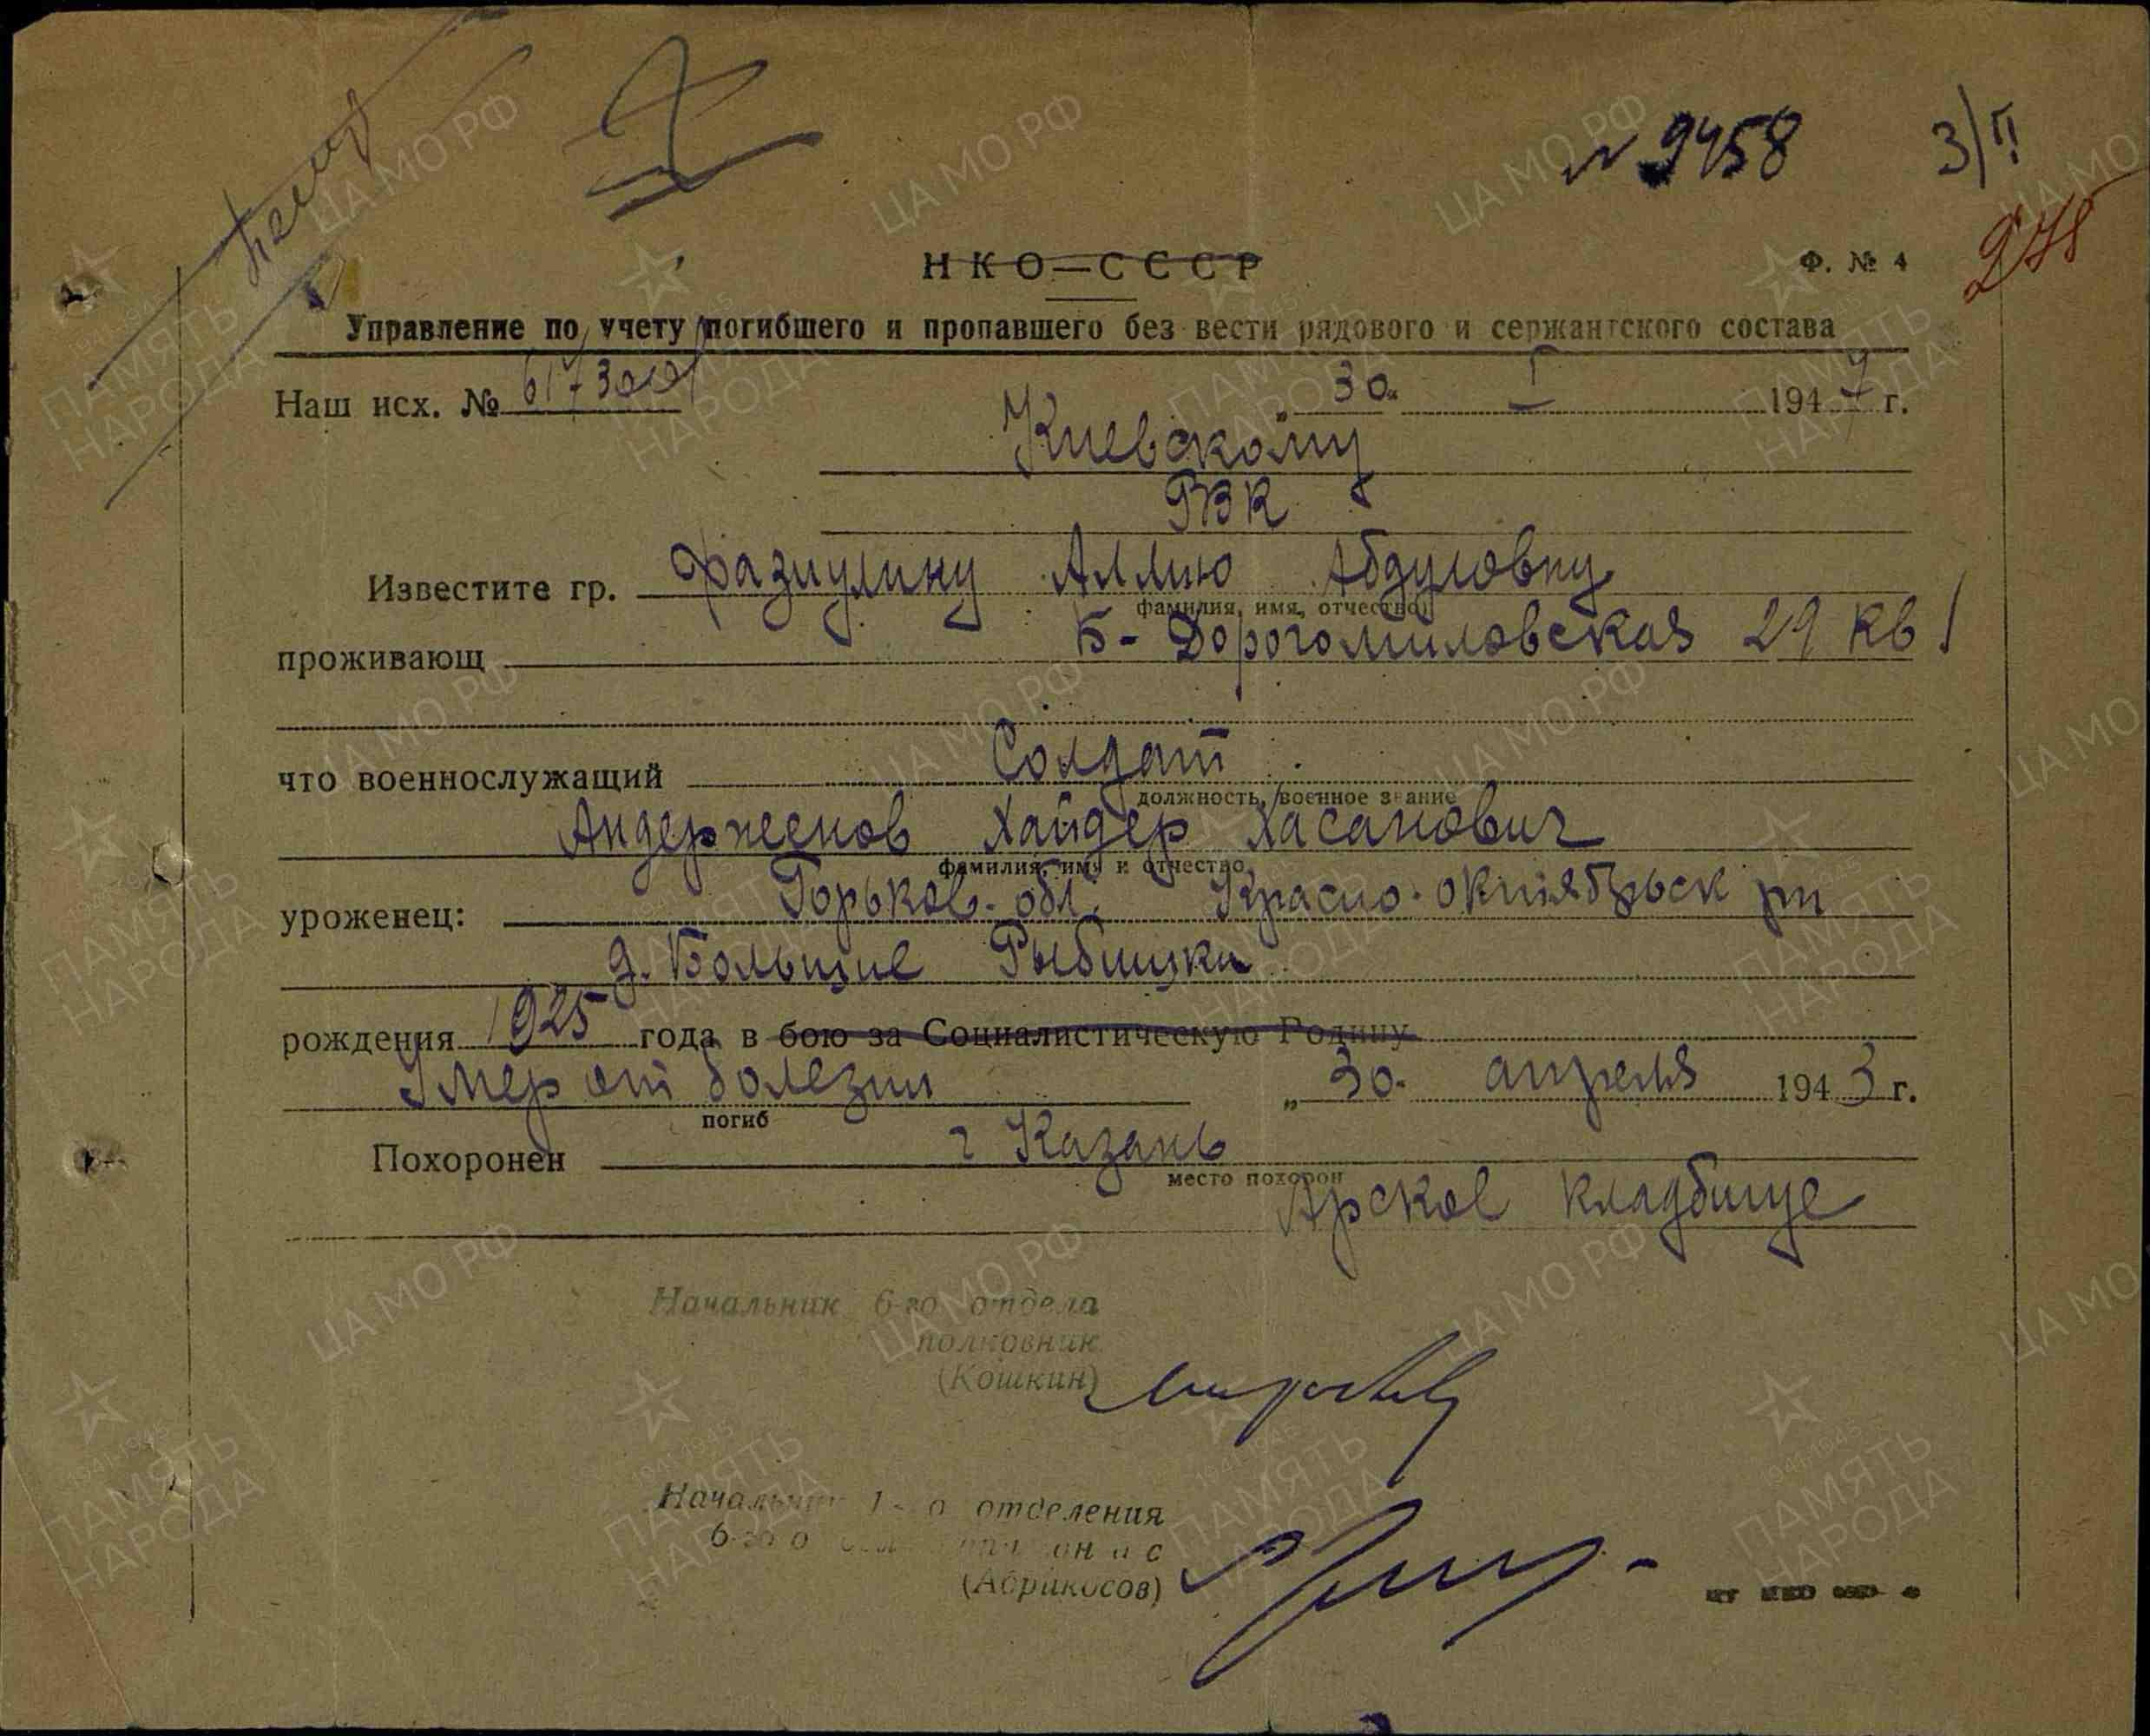 № 9458
3/II
278
НКО—СССР
Ф. № 4
Управление по учету погибшего и пропавшего без вести рядового и сержантского состава
Наш исх. № 617300 „30" I 1947 г.
Киевскому
РВК
Известите гр. Фазиулину Аллию Абдуловну
фамилия, имя, отчество
проживающ Б-Дорогомиловская 29 кв 1
что военнослужащий Солдат
должность, военное звание
Андержеенов Хайдер Хасанович
фамилия, имя и отчество
уроженец: Горьков. обл. Красно-октябрьск рн
д. Большие Рыбишки
рождения 1925 года в бою за Социалистическую Родину
Умер от болезни „30" апреля 1943 г.
погиб
Похоронен г Казань
место похорон
Арское кладбище
Начальник 6-го отдела
полковник
(Кошкин)
Начальник 1-го отделения
6-го
(Абрикосов)